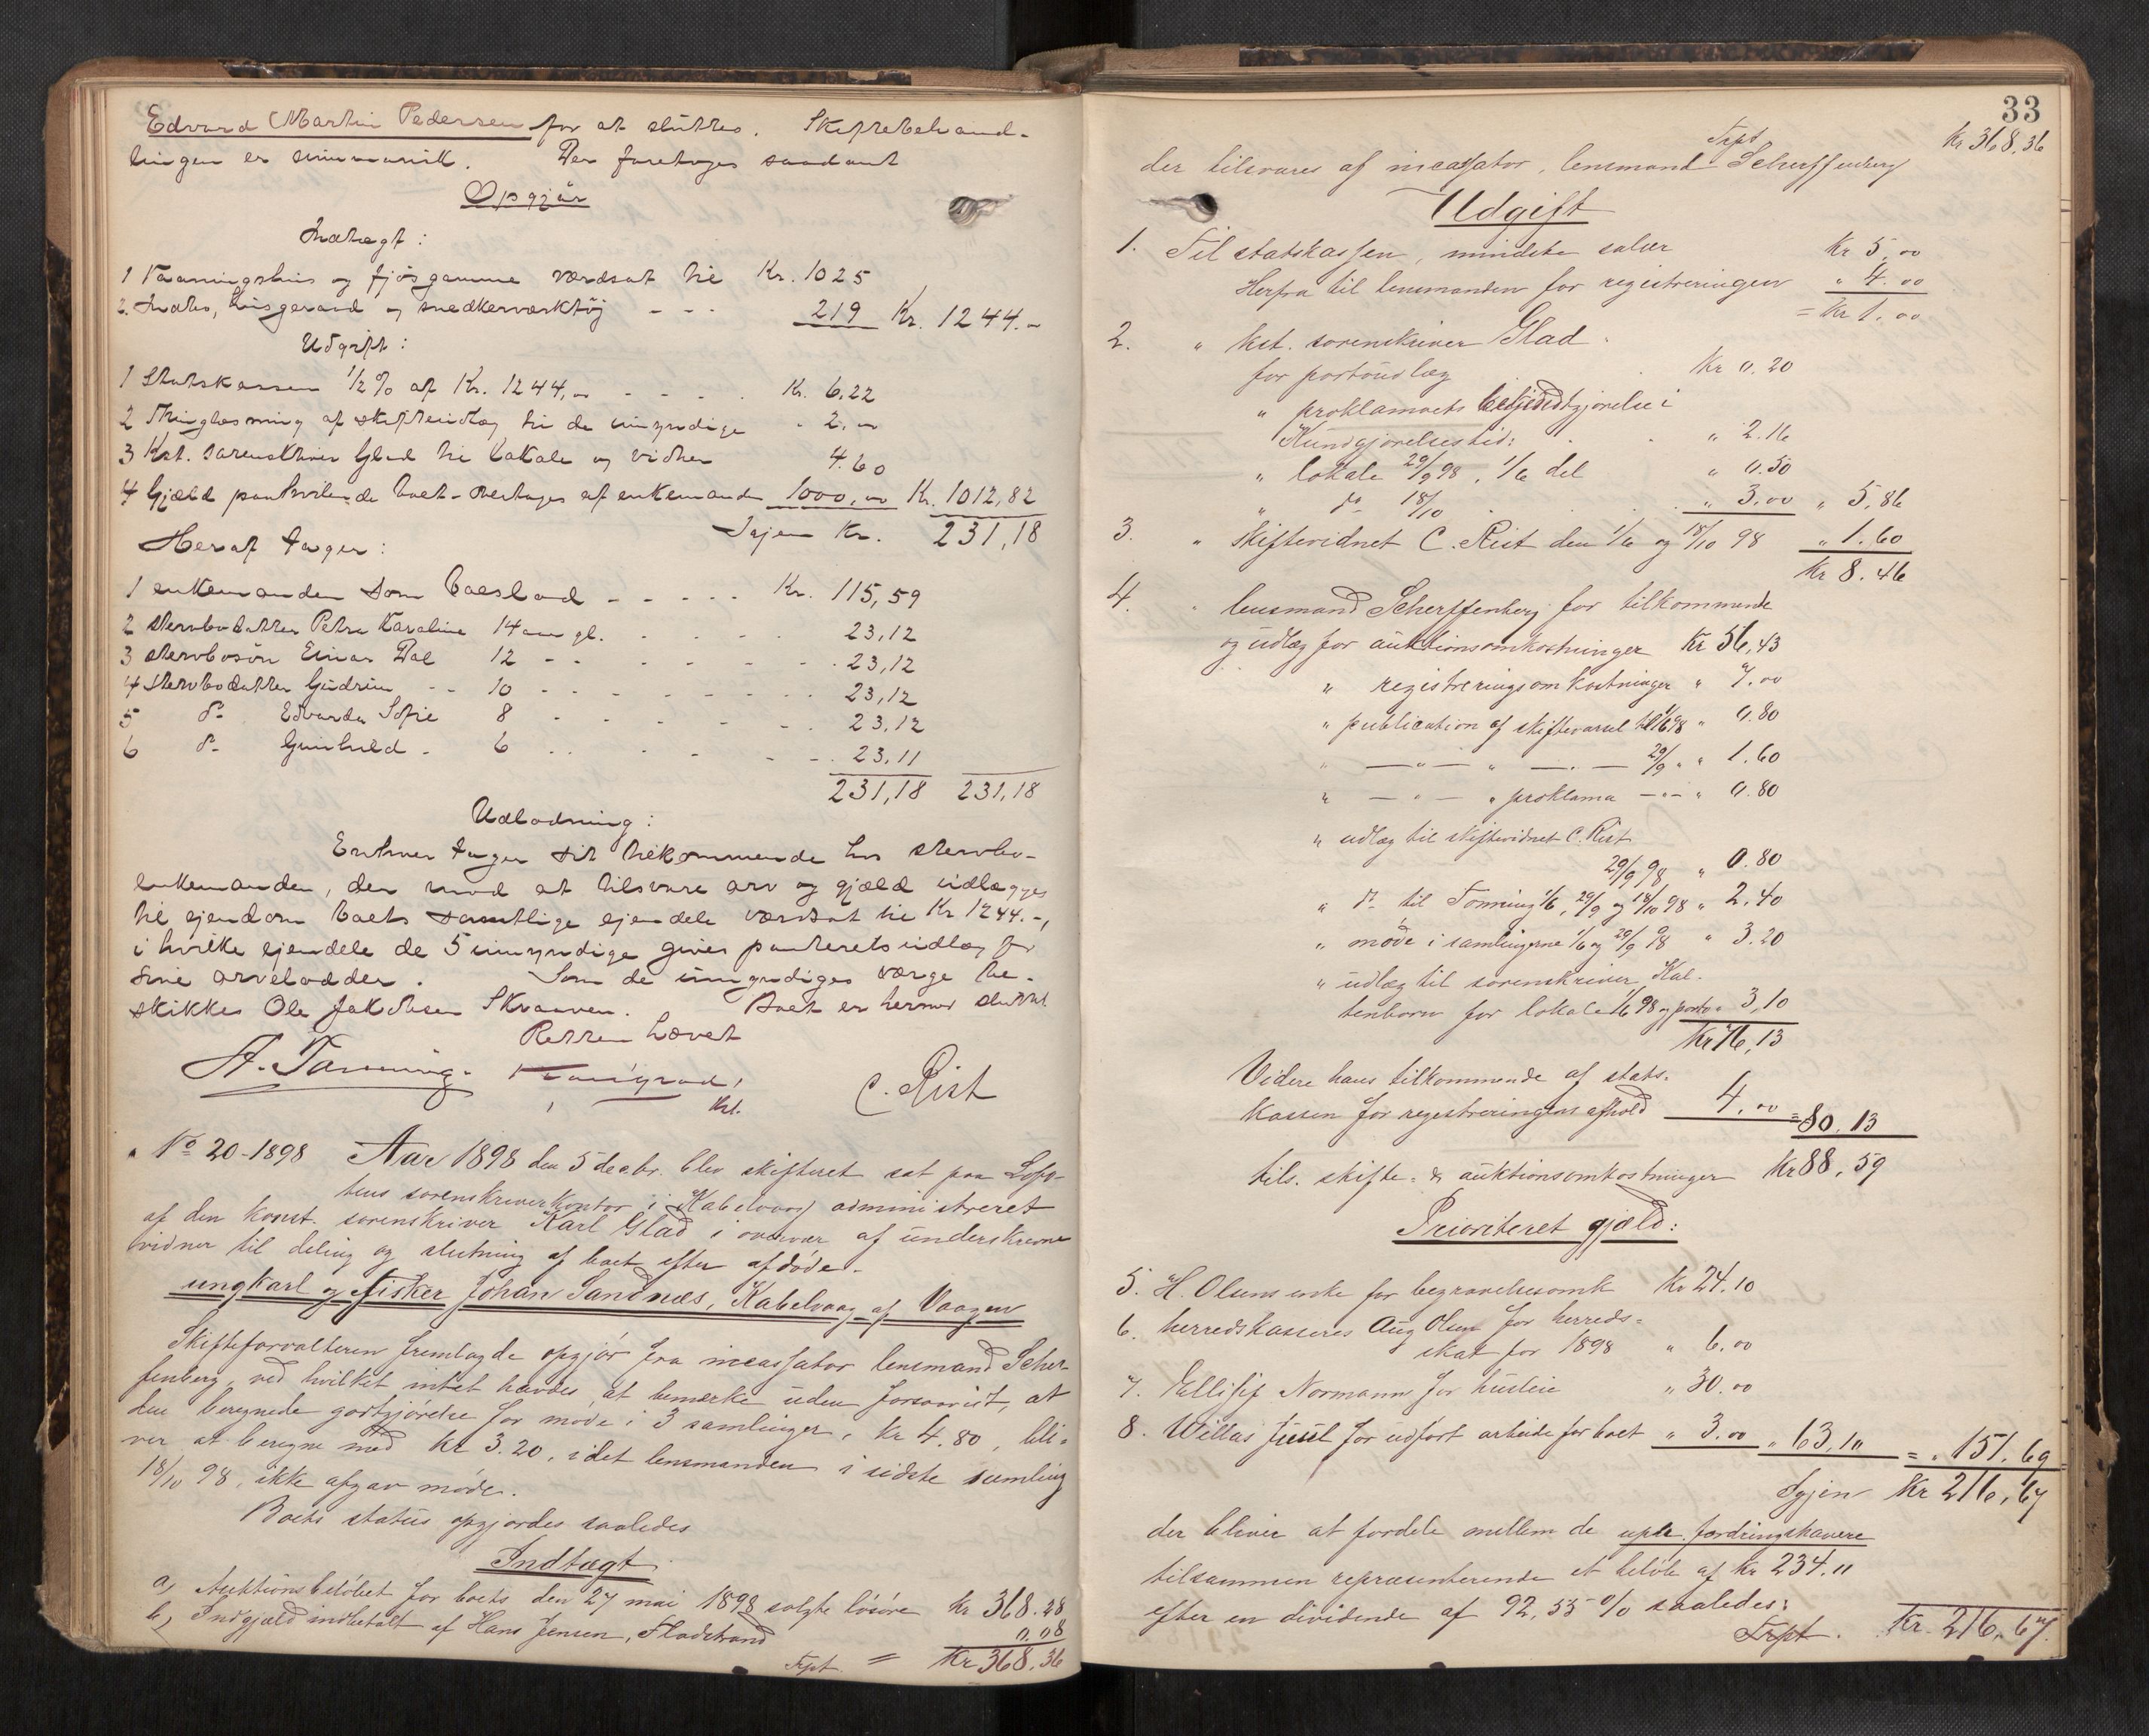 Edvard Martin Pedersen for at sluttes. Skiftebehand-
lingen er summarisk. Der foretoges saadant
Opgjør
Indtægt:
1 Vaaningshus og fjøsgamme værdsat til Kr. 1025
2. Indbo, husgeraad og snedkerværktøj - - - 219 Kr. 1244.-
Udgift:
1 Statskassen 1/2 % af Kr. 1244,00 - - - - Kr. 6,22
2 Thinglæsning af skifteudlæg til de umyndige " 2.00
3 Kst. Sorenskriver Glad til lokale og vidner 4.60
4 Gjæld paahvilende boet - overtages af enkemanden 1000,00 Kr. 1012,82
Igjen Kr. 231,18
Heraf tager:
1 enkemanden som boeslod - - - - - Kr. 115,59
2 stervbodatter Petra Karoline 14 aar gl. - - - - 23,12
3 stervbosøn Einar Dal 12 - - - - - - 23,12
4 Stervbodatter Gudrun - - 10 - - - - - - 23,12
5 do Edvarda Sofie 8 - - - - - 23,12
6 do Gunhild - 6 - - - - - 23,11
231,18 231,18
Udlodning:
Enhver tager sit tilkommende hos stervbo-
enkemanden, der mod at tilsvare arv og gjæld udlægges
til ejendom boets samtlige ejendele værdsat til Kr 1244.-,
i hvilke ejendele de 5 umyndige gives panterets udlæg for
sine arvelodder. Som de umyndiges værge be-
skikkes Ole Jakobsen Skraaven. Boet er hermed sluttet
Retten hævet
A. Tønning. Kst. C. Rist
No 20-1898 Aar 1898 den 5 decbr. blev skifteret sat paa Lofo-
tens sorenskriverkontor i Kabelvaag administreret
af den konst. sorenskriver Karl Glad i overvær af underskrevne
vidner til deling og slutning af boet efter afdøde -
ungkarl og fisker Johan Sandnæs, Kabelvaag af Vaagen
Skifteforvalteren fremlagde opgjør fra incassator lensmand Scher-
fenberg, ved hvilket intet havdes at bemærke uden forsaavidt, at
den beregnede godtgjørelse for møde i 3 samlinger, Kr 4.80, bli-
ver at beregne med Kr 3.20, idet lensmanden i sidste samling
18/10 98, ikke afgav møde.
Boets status opgjordes saaledes
Indtægt
a) Auktionsbeløbet for boets den 27 mai 1898 solgte løsøre Kr 368.28
b) Indgjæld indbetalt af Hans Jensen, Fladstrand 0.08
Trpt. = Kr 368.36
33
Trpt Kr 368.36
der tilsvares af incassator, lensmand Scherffenberg
Udgift
1. Til statskassen, mindste salær Kr 5.00
Herfra til lensmanden for registreringen " 4.00
= Kr 1.00
2. " kst. sorenskriver Glad.
for portoudlæg Kr 0.20
" proklamaets bekjendtgjørelse i
Kundgjørelsestid: " 2.16
" lokale 29/9 98, 1/6 del " 0.50
" do 18/10 " 3.00 " 5,86
3. " Skiftevidnet C. Rist den 1/6 og 18/10 98 " 1.60
Kr 8.46
4. " lensmand Scherffenberg for tilkommende
og udlæg for auktionsomkostninger Kr 56,43
" registreringsomkostninger " 7.00
" publication af skiftevarsel til 1/6 98 " 0.80
" — " — " — " — 29/9 " " 1.60
" — " — " proklama — " — " 0.80
" udlæg til skiftevidnet C. Rist
29/9 98 " 0.80
" do til Tønning 1/6, 29/9 og 18/10 98 " 2.40
" møde i samlingerne 1/6 og 29/9 98 " 3.20
" udlæg til sorenskriver Kal-
tenborn for lokale 1/6 98 og porto " 3,10
Kr 76,13
Videre hans tilkommende af stats-
kassen for registreringens afhold 4.00 = 80.13
tils. skifte- & auktionsomkostninger Kr 88,59
Prioriteret gjæld:
5. H. Olsens enke for begravelsesomk Kr 24.10
6. herredskasseres Aug Olsen for herreds-
skat for 1898 " 6.00
7. Ellisif Normann for husleie " 30.00
8. Willas Juul for udført arbeide for boet " 3.00 " 63,10 = " 151.69
Igjen Kr 216,67
der bliver at fordele mellem de upr. fordringshavere
tilsammen repræsenterende et beløb af Kr 234.11
efter en dividende af 92,55 % saaledes:
Trpt. Kr. 216,67.